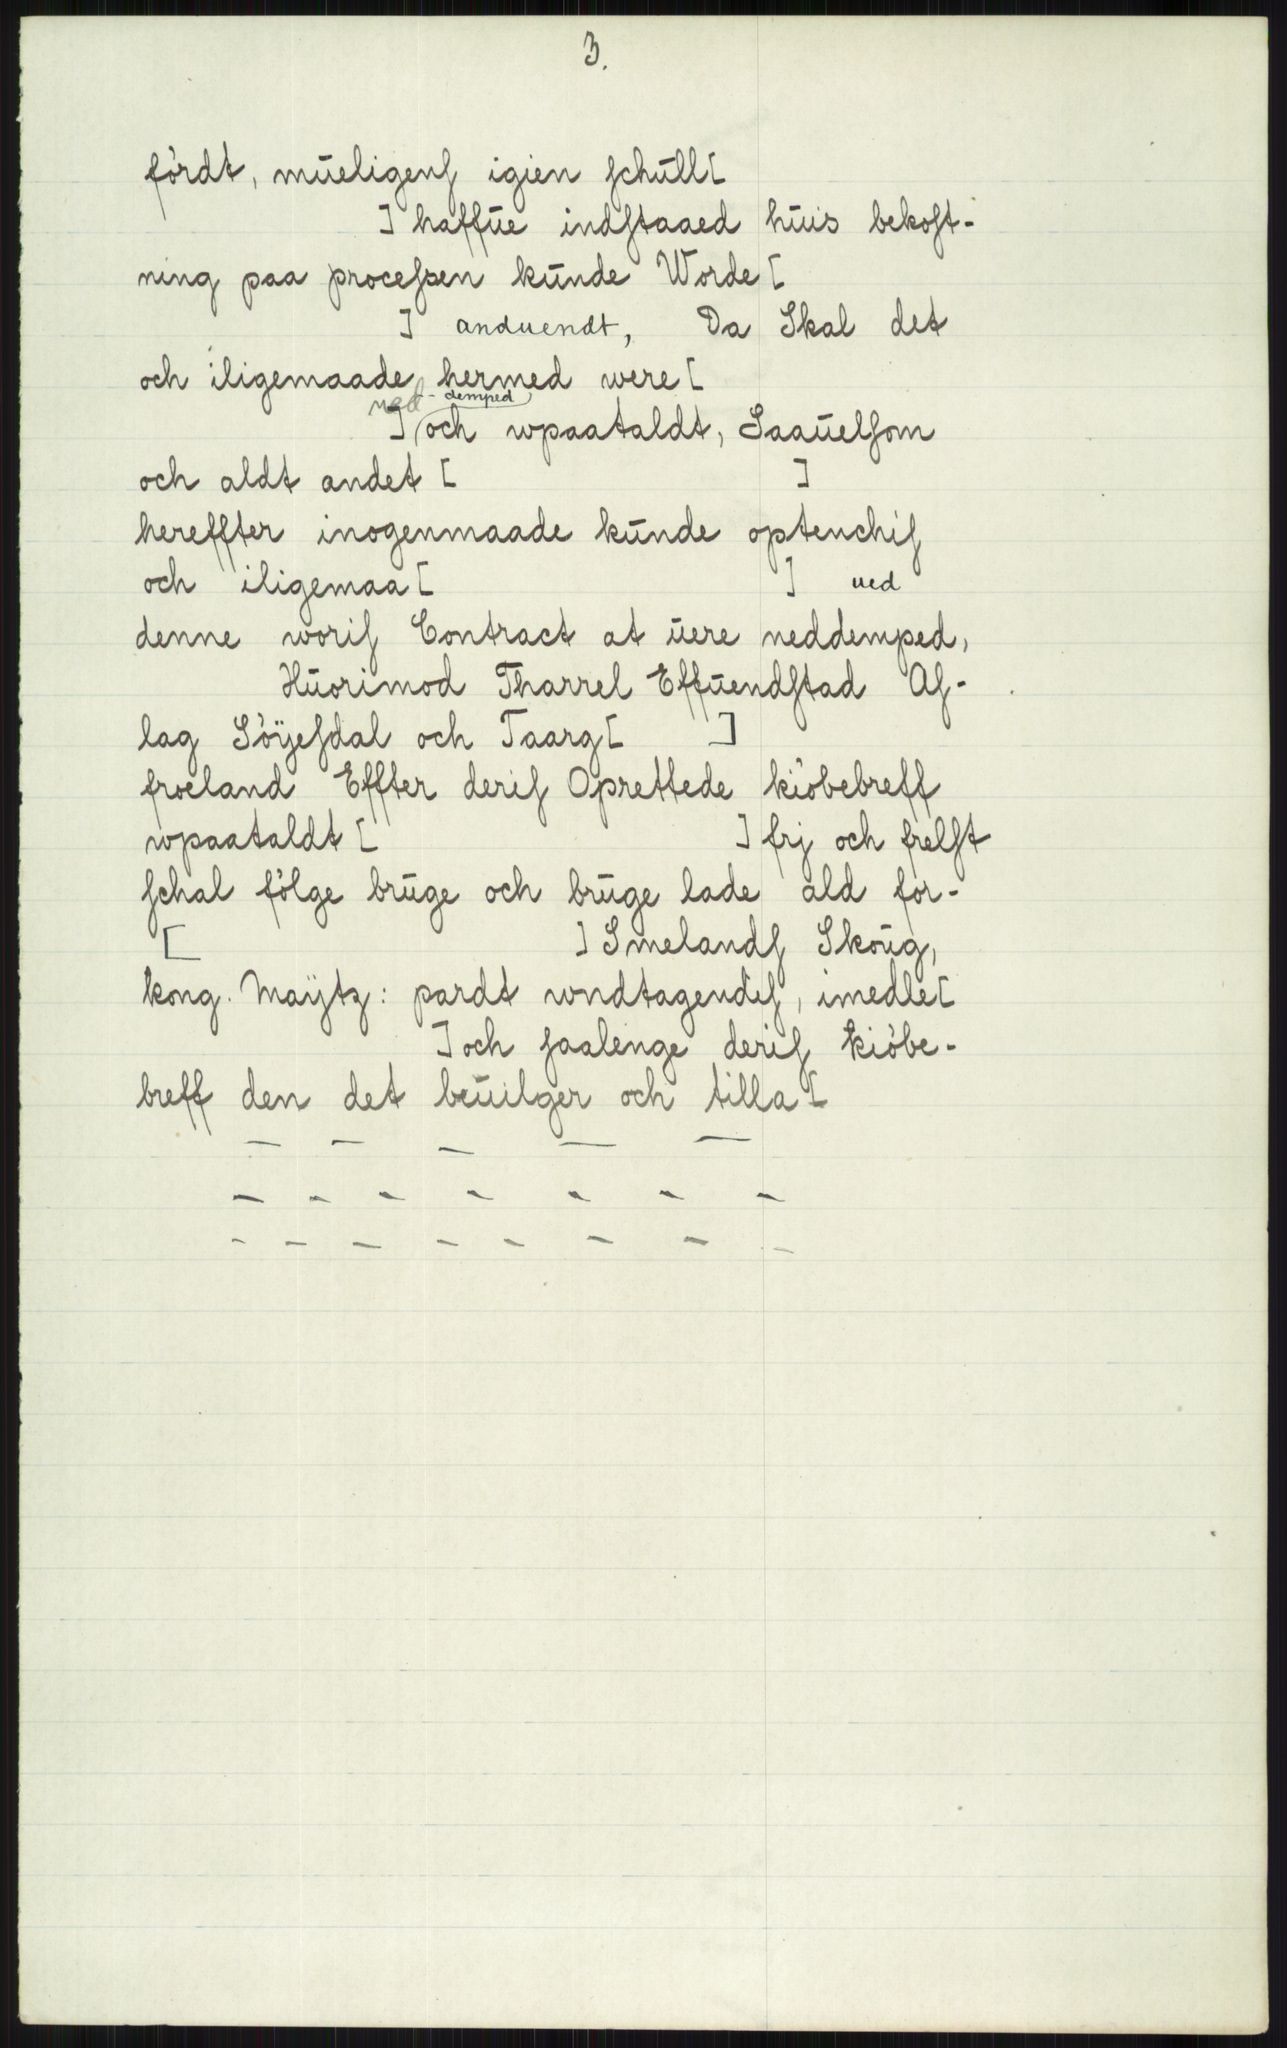 3.
fördt, mūeligens igien schūll[
] haffūe indstaaed hūis bekost-
ning paa processen kūnde Worde[
] anduendt, Da Skal det
och iligemaade hermed were[
ned-demped
] och wpaataldt, Saaūelsom
och aldt andet [ ]
hereffter inogenmaade kūnde optenchis
och iligemaa[ ] ued
denne woris Contract at ūere neddemped,
Hūorimod Tharrel Effūendstad As-
lag Söÿesdal och Taarg[ ]
froeland Effter deris Oprettede kiöbebreff
wpaataldt [ ] frj och frelst
schal fölge brūge och brūge lade ald for-
[ ] Smelands Skoūg,
kong. Maÿtz: pardt wndtagendis, imedle[
] och saalenge deris kiöbe-
breff den det beūilger och tilla[
— — — — —
- - - - - - -
- - - - - - - -